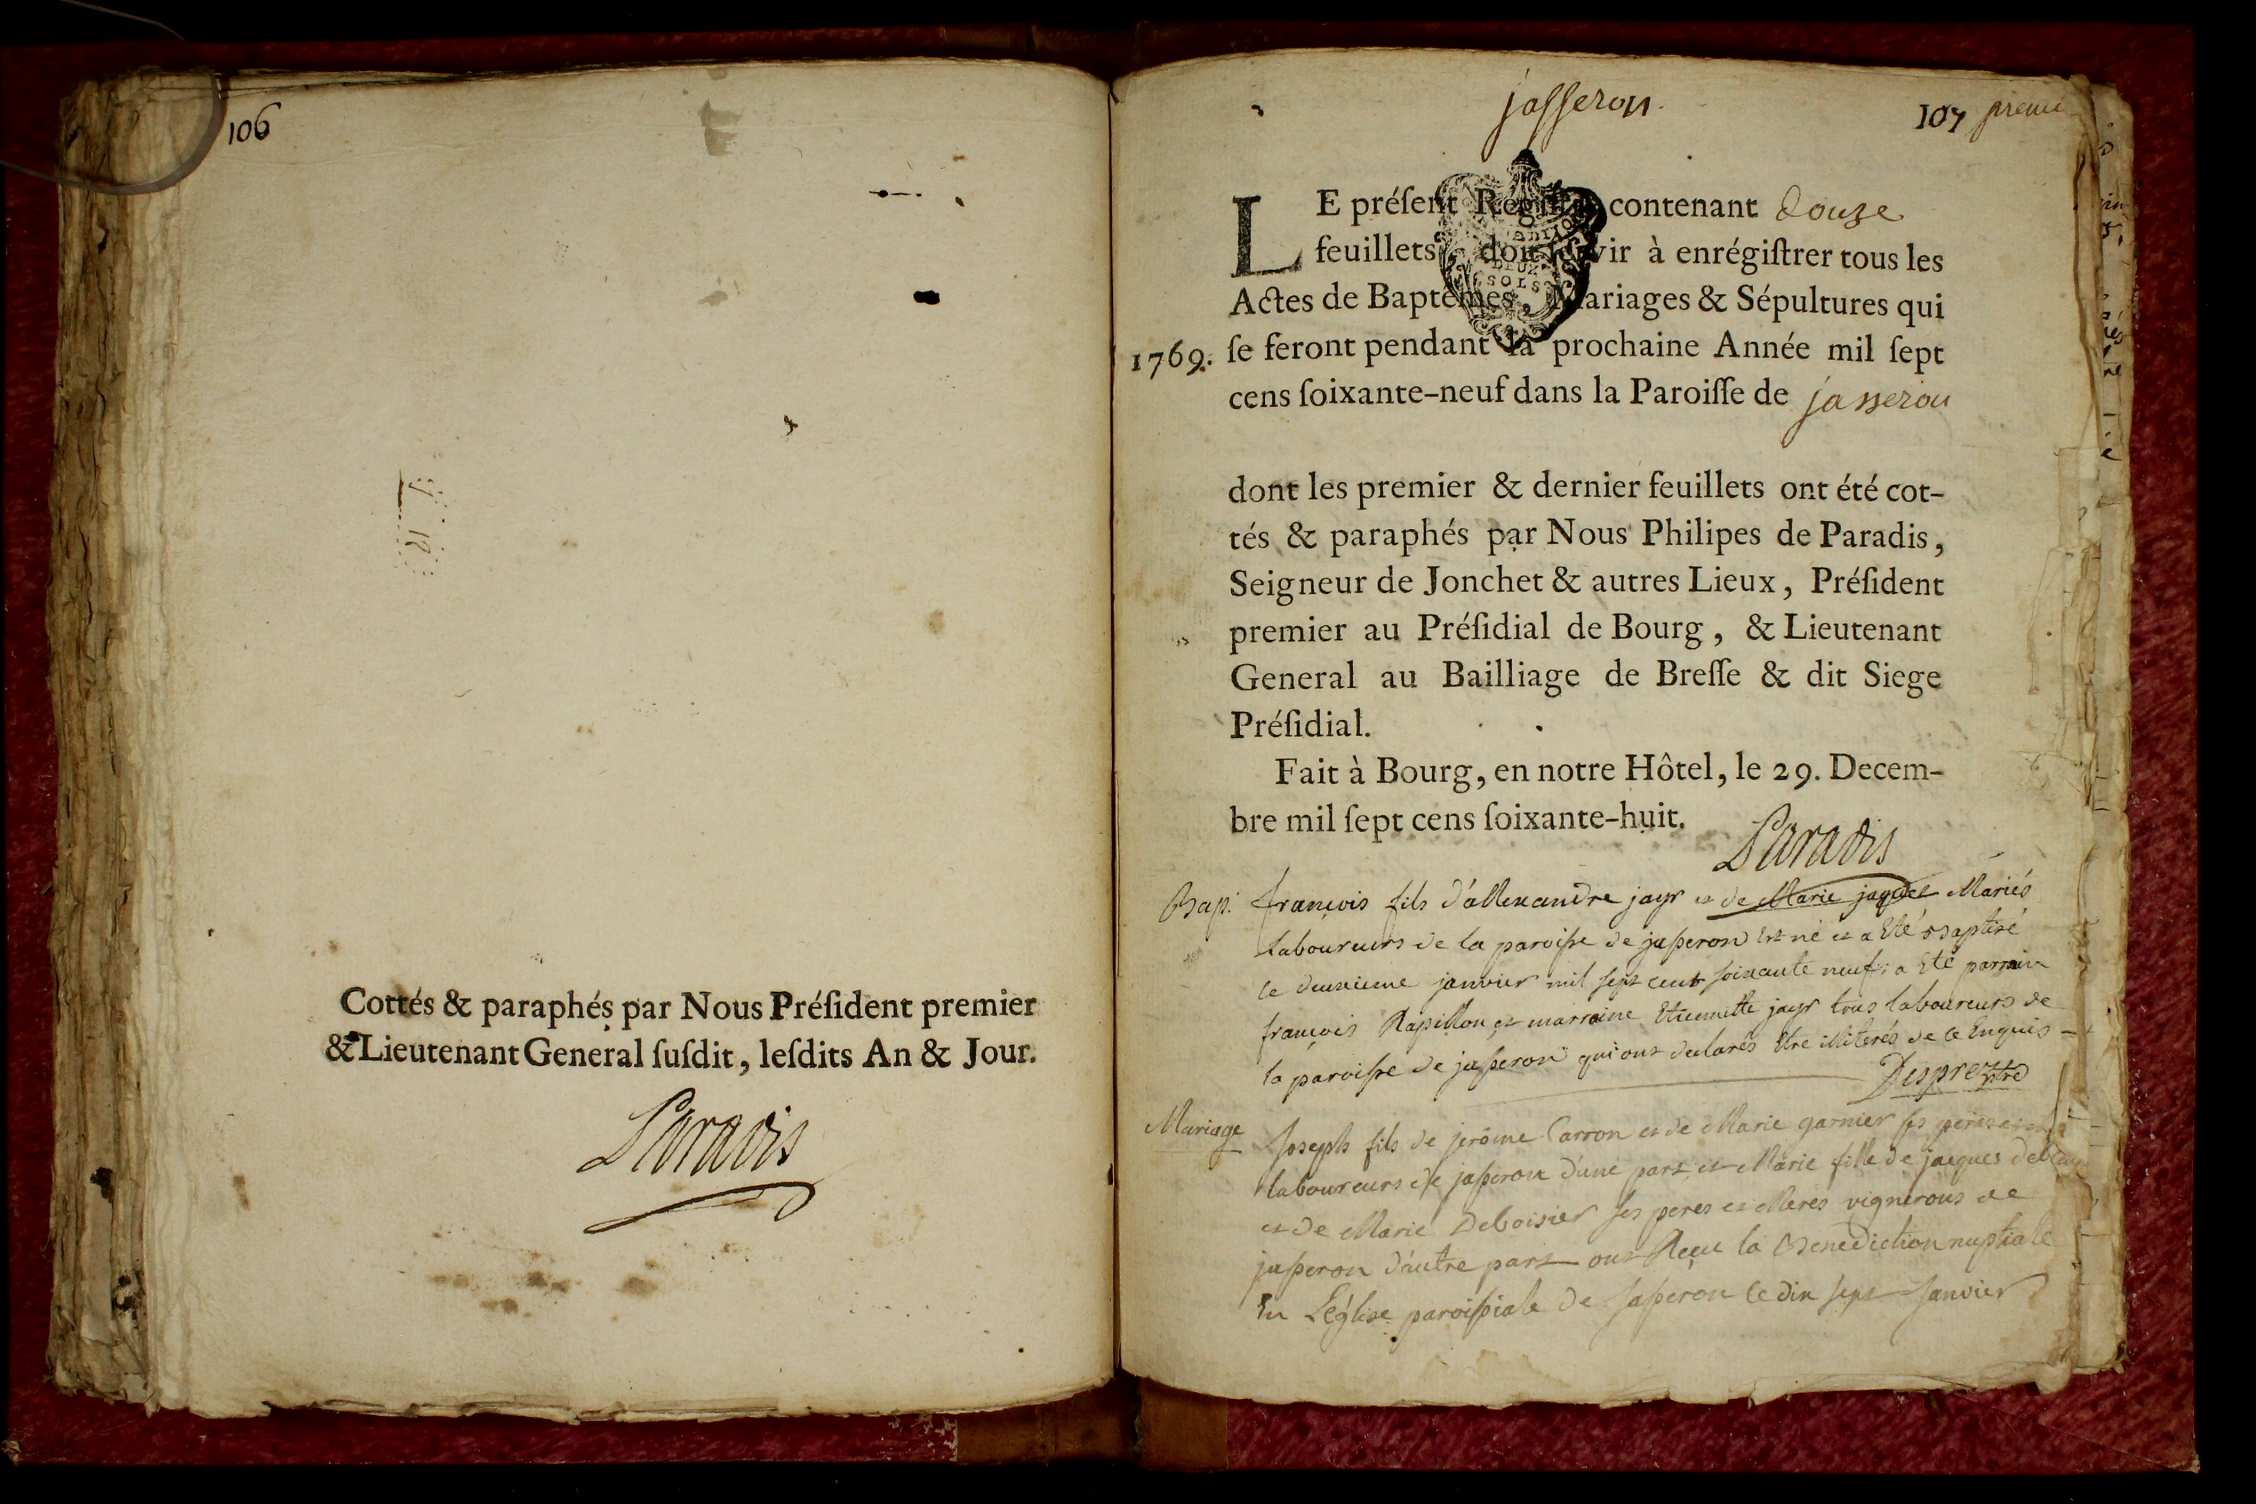 106
Cottés & paraphés par Nous Préſident premier
& Lieutenant General ſuſdit, leſdits An & Jour.
Paradis
jasseron
107 premi
LE préſent Regiſtre contenant douze
feuillets, doit ſervir à enrégiſtrer tous les
Actes de Baptêmes, Mariages & Sépultures qui
1769. ſe feront pendant la prochaine Année mil ſept
cens ſoixante-neuf dans la Paroiſſe de jasseron
dont les premier & dernier feuillets ont été cot-
tés & paraphés par Nous Philipes de Paradis,
Seigneur de Jonchet & autres Lieux, Préſident
premier au Préſidial de Bourg, & Lieutenant
General au Bailliage de Breſſe & dit Siege
Préſidial.
Fait à Bourg, en notre Hôtel, le 29. Decem-
bre mil ſept cens ſoixante-huit.
Paradis
Bap. françois fils d'allexandre jayr et de Marie Mariés
laboureurs de la paroisse de jasseron est né et a Eté Baptisé
le deuxieme janvier mil sept cent soixante neuf; a Eté parrain
françois Rapillon et marraine Etiennette jayr tous laboureurs de
la paroisse de jasseron qui ont declarés Etre illiterés de ce Enquis
Desprez
Mariage Joseph fils de jerôme Carron et de Marie garnier ses peres et
laboureurs de jasseron d'une part et Marie fille de jacques
et de Marie Deboisier ses peres et Meres vignerons de
jasseron d'autre part ont Reçu la Benediction nuptiale
En L'église paroissiale de Jasseron le dix sept Janvier